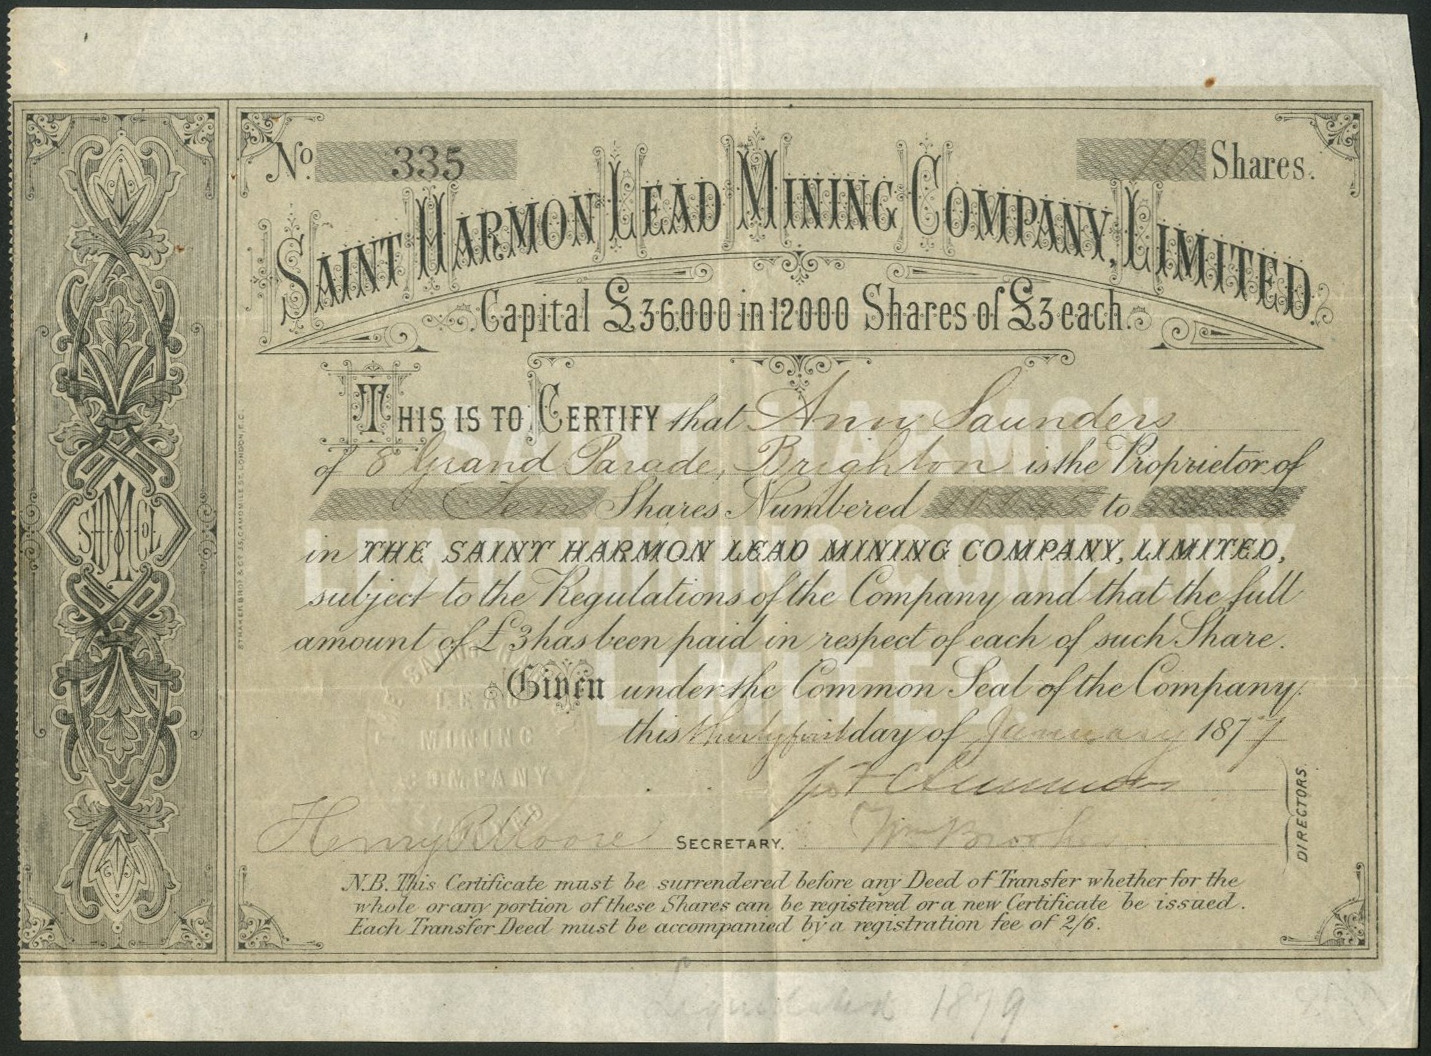 No. 335 10 Shares.
SAINT HARMON LEAD MINING COMPANY, LIMITED.
Capital £36.000 in 12000 Shares of £3 each.
THIS IS TO CERTIFY that Ann Saunders
of 8 Grand Parade, Brighton is the Proprietor of
Ten Shares Numbered to
in THE SAINT HARMON LEAD MINING COMPANY, LIMITED,
subject to the Regulations of the Company and that the full
amount of £3 has been paid in respect of each of such Share.
Given under the Common Seal of the Company,
this thirty first day of January 1877
Henry R Moore SECRETARY. Wm
DIRECTORS.
N.B. This Certificate must be surrendered before any Deed of Transfer whether for the
whole or any portion of these Shares can be registered or a new Certificate be issued.
Each Transfer Deed must be accompanied by a registration fee of 2/6.
SAINT HARMON
LEAD MINING COMPANY
LIMITED.
LEAD
MINING
COMPANY
Liquidated 1879